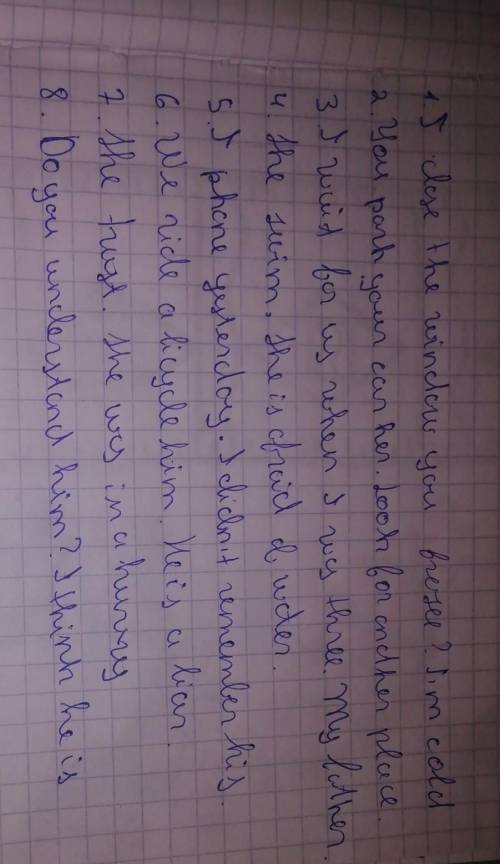 1. I close the window you freeze? I'm cold
2. You park your car her. Look for another place.
3. I wait for us when I was three. My father.
4. She swim. She is afraid of water.
5. I phone yesterday. I didn't remember his.
6. We ride a bicycle him. He is a liar.
7. She trust. She was in a hurry
8. Do you understand him? I think he is